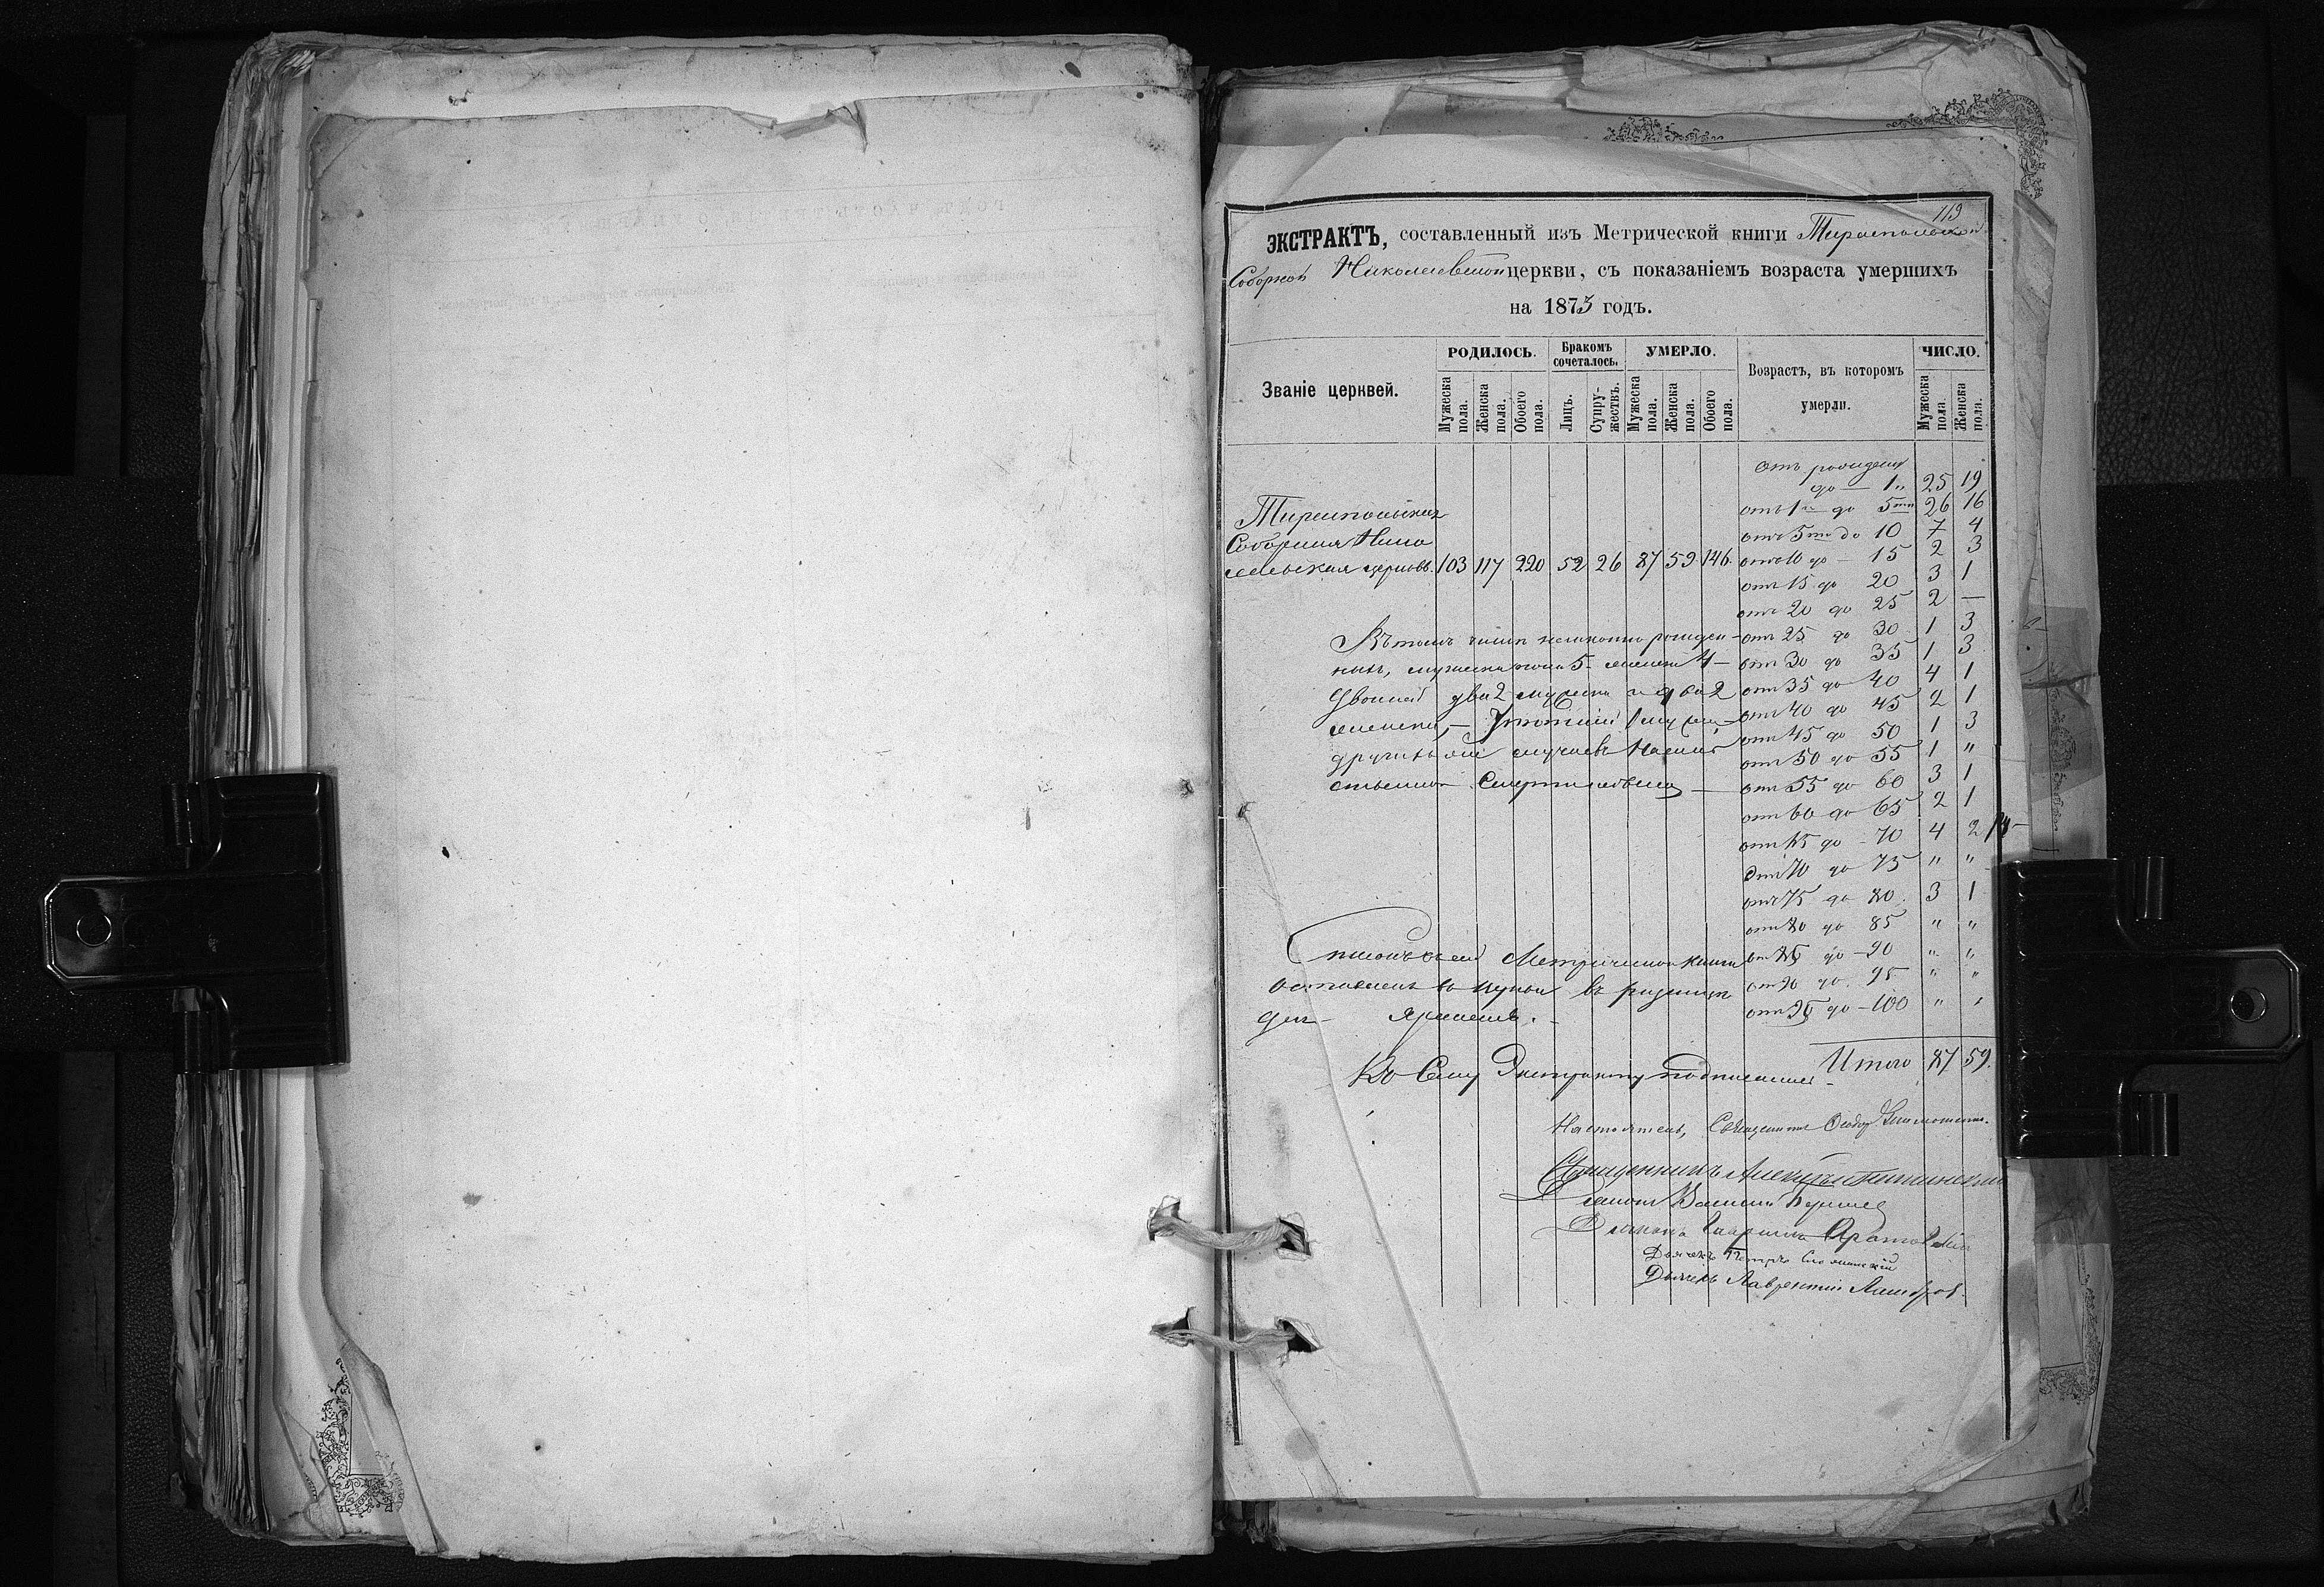 119
ЭКСТРАКТЪ, составленный изъ Метрической книги Тираспольской
Соборной Николаевской церкви, съ показаніемъ возраста умершихъ
на 1875 годъ.
Званіе церквей.
РОДИЛОСЬ.
Мужеска пола.
Женска пола.
Обоего пола.
Бракомъ сочеталось.
Лицъ.
Супружествъ.
УМЕРЛО.
Мужеска пола.
Женска пола.
Обоего пола.
Возрастъ, въ которомъ
умерли.
ЧИСЛО.
Мужеска пола.
Женска пола.
Тираспольская
Соборная Нико
лаевская церковь. 103 117 220 52 26 87 59 146.
отъ рожденія
до — 1 25 19
отъ 1 до 5ти 26 16
отъ 5ти до 10 7 4
отъ 10 до — 15 2 3
отъ 15 до 20 3 1
отъ 20 до 25 2 —
отъ 25 до 30 1 3
отъ 30 до 35 1 3
отъ 35 до 40 4 1
отъ 40 до 45 2 1
отъ 45 до 50 1 3
отъ 50 до 55 1 "
отъ 55 до 60 3 1
отъ 60 до 65 2 1
отъ 65 до 70 4 2
отъ 70 до 75 " "
отъ 75 до 80 3 1
отъ 80 до 85 " "
отъ 85 до — 90 " "
отъ 90 до 95 " "
отъ 95 до — 100 " "
Итого 87 59.
Въ томъ числѣ незаконно рожден-
ныхъ, мужеска пола 5 женска 4 —
Двойней два 2 мужска и два 2
женска, —
другихъ же случаевъ
Списокъ сей Метрической книги
оставленъ въ церкви въ ризницѣ
для храненія. —
Къ Сему Экстракту подписались
Настоятель, Священникъ Ѳеодоръ
Священникъ
Діаконъ Василій
Гавріилъ
Дьячекъ Петръ
Дьячекъ Лаврентій